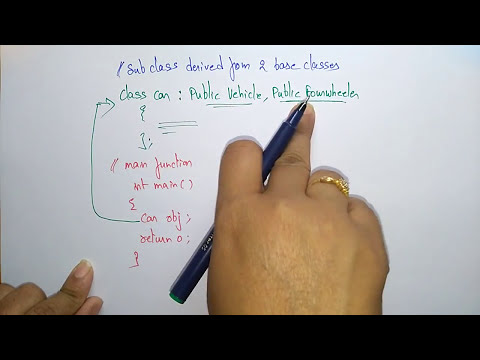 // Sub class derived from 2 base classes
Class car : Public Vehicle, Public Fourwheeler
{
};
// main function
int main()
{
Car obj ;
return 0 ;
}